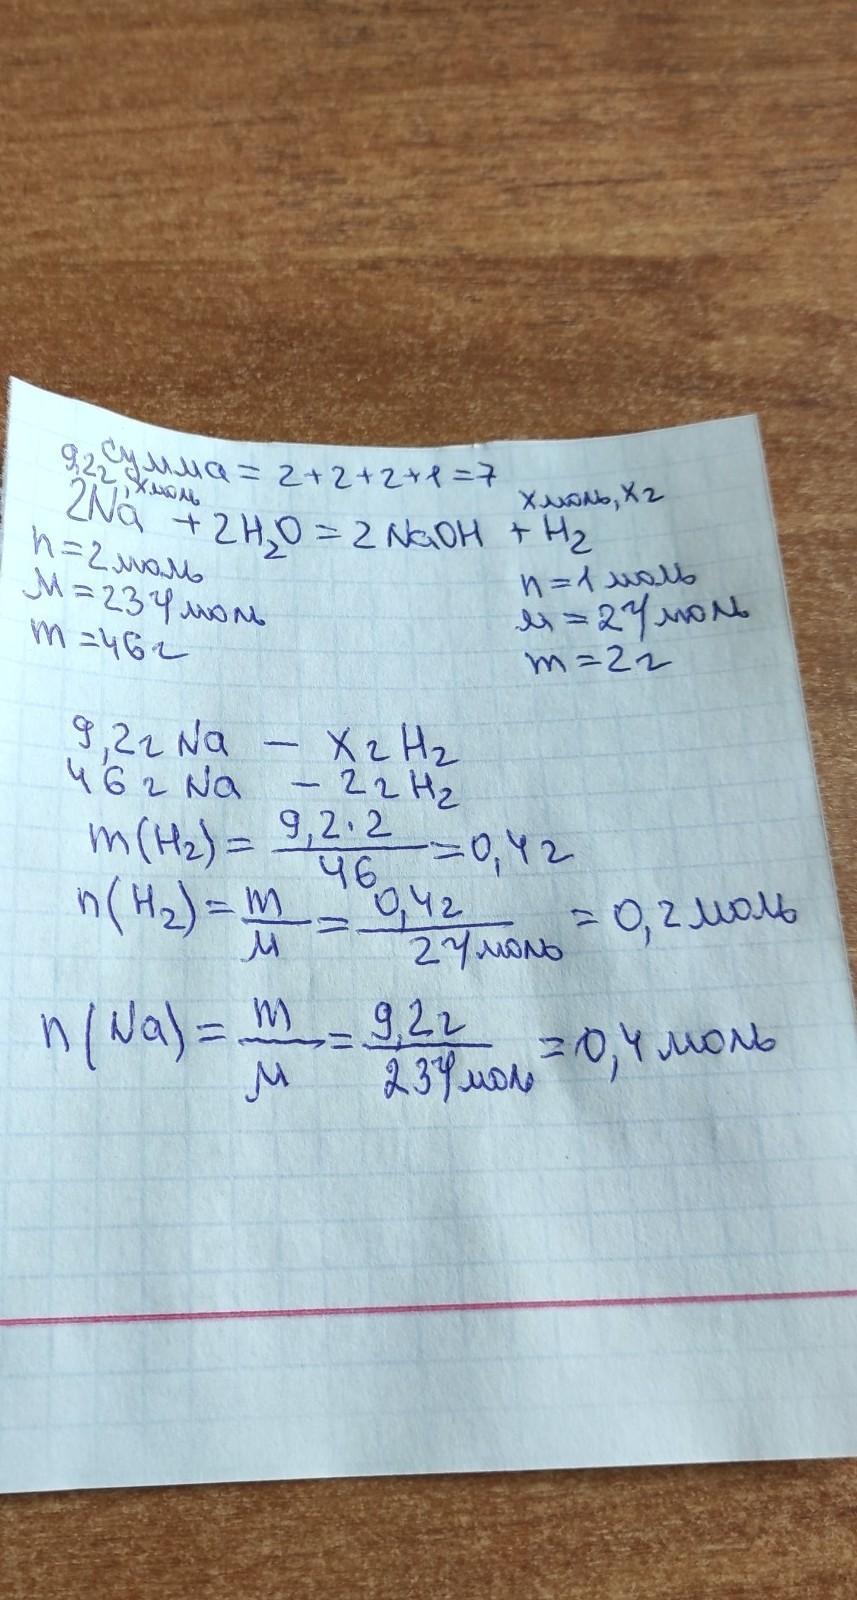 Сумма = 2+2+2+1=7
9,2г, х моль
х моль, х г
2Na + 2H₂O = 2NaOH + H₂
n=2 моль
n=1 моль
M=23 г/моль
M=2 г/моль
m=46г
m=2г
9,2г Na – х г H₂
46 г Na – 2г H₂
m(H₂)= 9,2·2/46 =0,4г
n(H₂)= m/M = 0,4г/2 г/моль = 0,2 моль
n(Na)= m/M = 9,2г/23 г/моль =0,4 моль